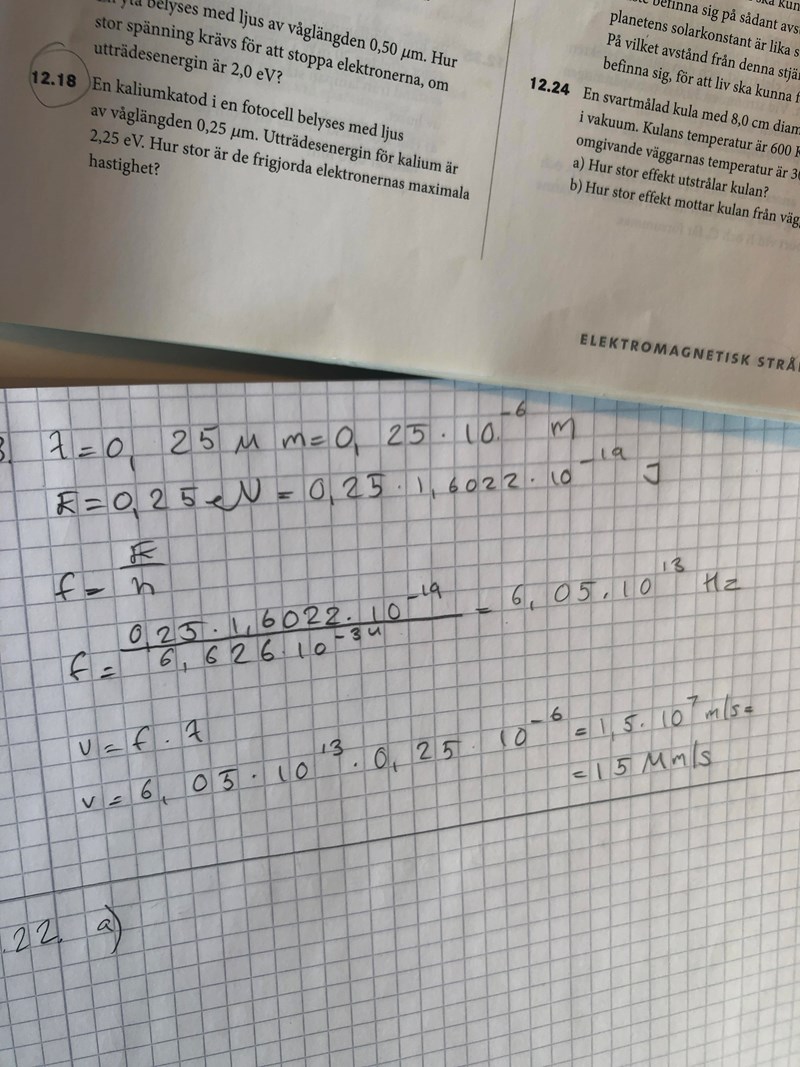 belyses med ljus av våglängden 0,50 μm. Hur
stor spänning krävs för att stoppa elektronerna, om
utträdesenergin är 2,0 eV?
12.18 En kaliumkatod i en fotocell belyses med ljus
av våglängden 0,25 μm. Utträdesenergin för kalium är
2,25 eV. Hur stor är de frigjorda elektronernas maximala
hastighet?
befinna sig på sådant
planetens solarkonstant är lika
På vilket avstånd från denna
befinna sig, för att liv ska kunna
12.24 En svartmålad kula med 8,0 cm
i vakuum. Kulans temperatur är 600
omgivande väggarnas temperatur är
a) Hur stor effekt utstrålar kulan?
b) Hur stor effekt mottar kulan från
ELEKTROMAGNETISK
λ = 0,25 μm = 0,25 · 10^-6 m
E = 0,25 eV = 0,25 · 1,6022 · 10^-19 J
f = E/h
f = 0,25 · 1,6022 · 10^-19 / 6,626 · 10^-34 = 6,05 · 10^13 Hz
v = f · λ
v = 6,05 · 10^13 · 0,25 · 10^-6 = 1,5 · 10^7 m/s =
= 15 Mm/s
.22. a)